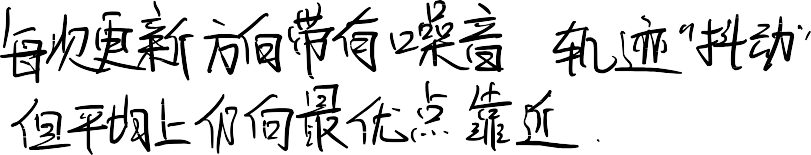 每次更新方向带有噪音 轨迹“抖动”
但平均上仍向最优点靠近.